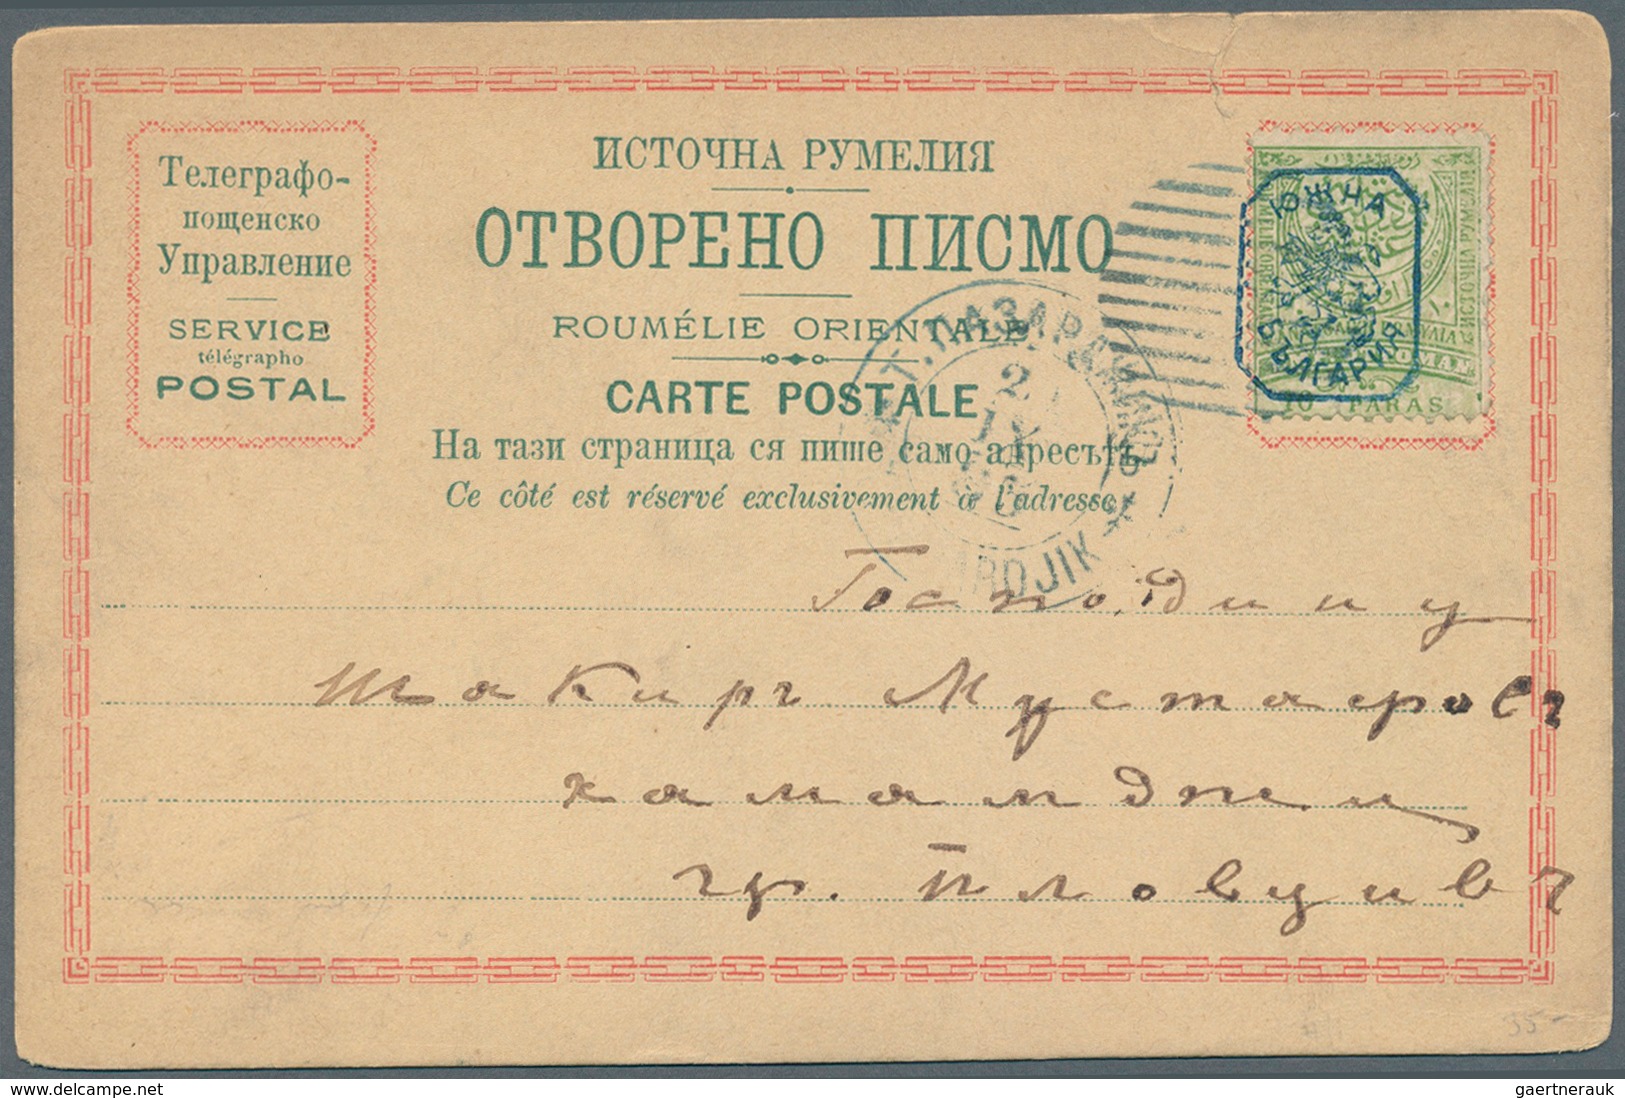 Телеграфо-
пощенско
Управление
SERVICE
télégrapho
POSTAL
ИСТОЧНА РУМЕЛИЯ
ОТВОРЕНО ПИСМО
ROUMÉLIE ORIENTALE
CARTE POSTALE
На тази страница ся пише само адресътъ
Ce côté est réservé exclusivement à l'adresse
ЮЖНА
БЪЛГАРИЯ
10 PARAS
Т. ПАЗАРДЖИКЪ
2
IX
RDJIK
Господину
Шакиръ Мустафовъ
хаманджи
гр. Пловдивъ
35-
delcampe.net
gaertnerauk